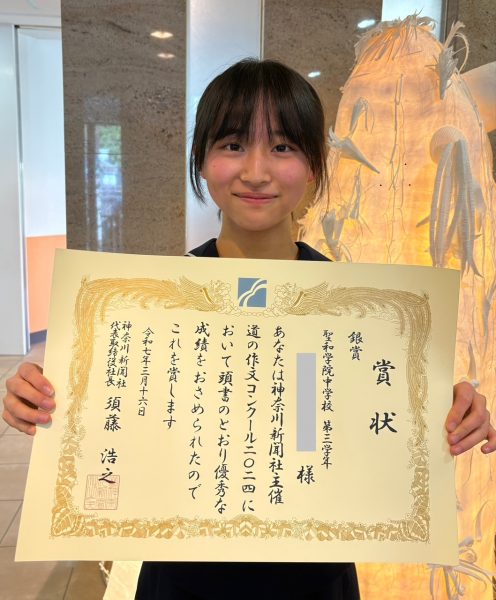 賞状
銀賞
聖和学院中学校 第三学年
様
あなたは神奈川新聞社主催
道の作文コンクール二〇二四に
おいて頭書のとおり優秀な
成績をおさめられたので
これを賞します
令和七年三月十六日
神奈川新聞社
代表取締役社長 須藤 浩之